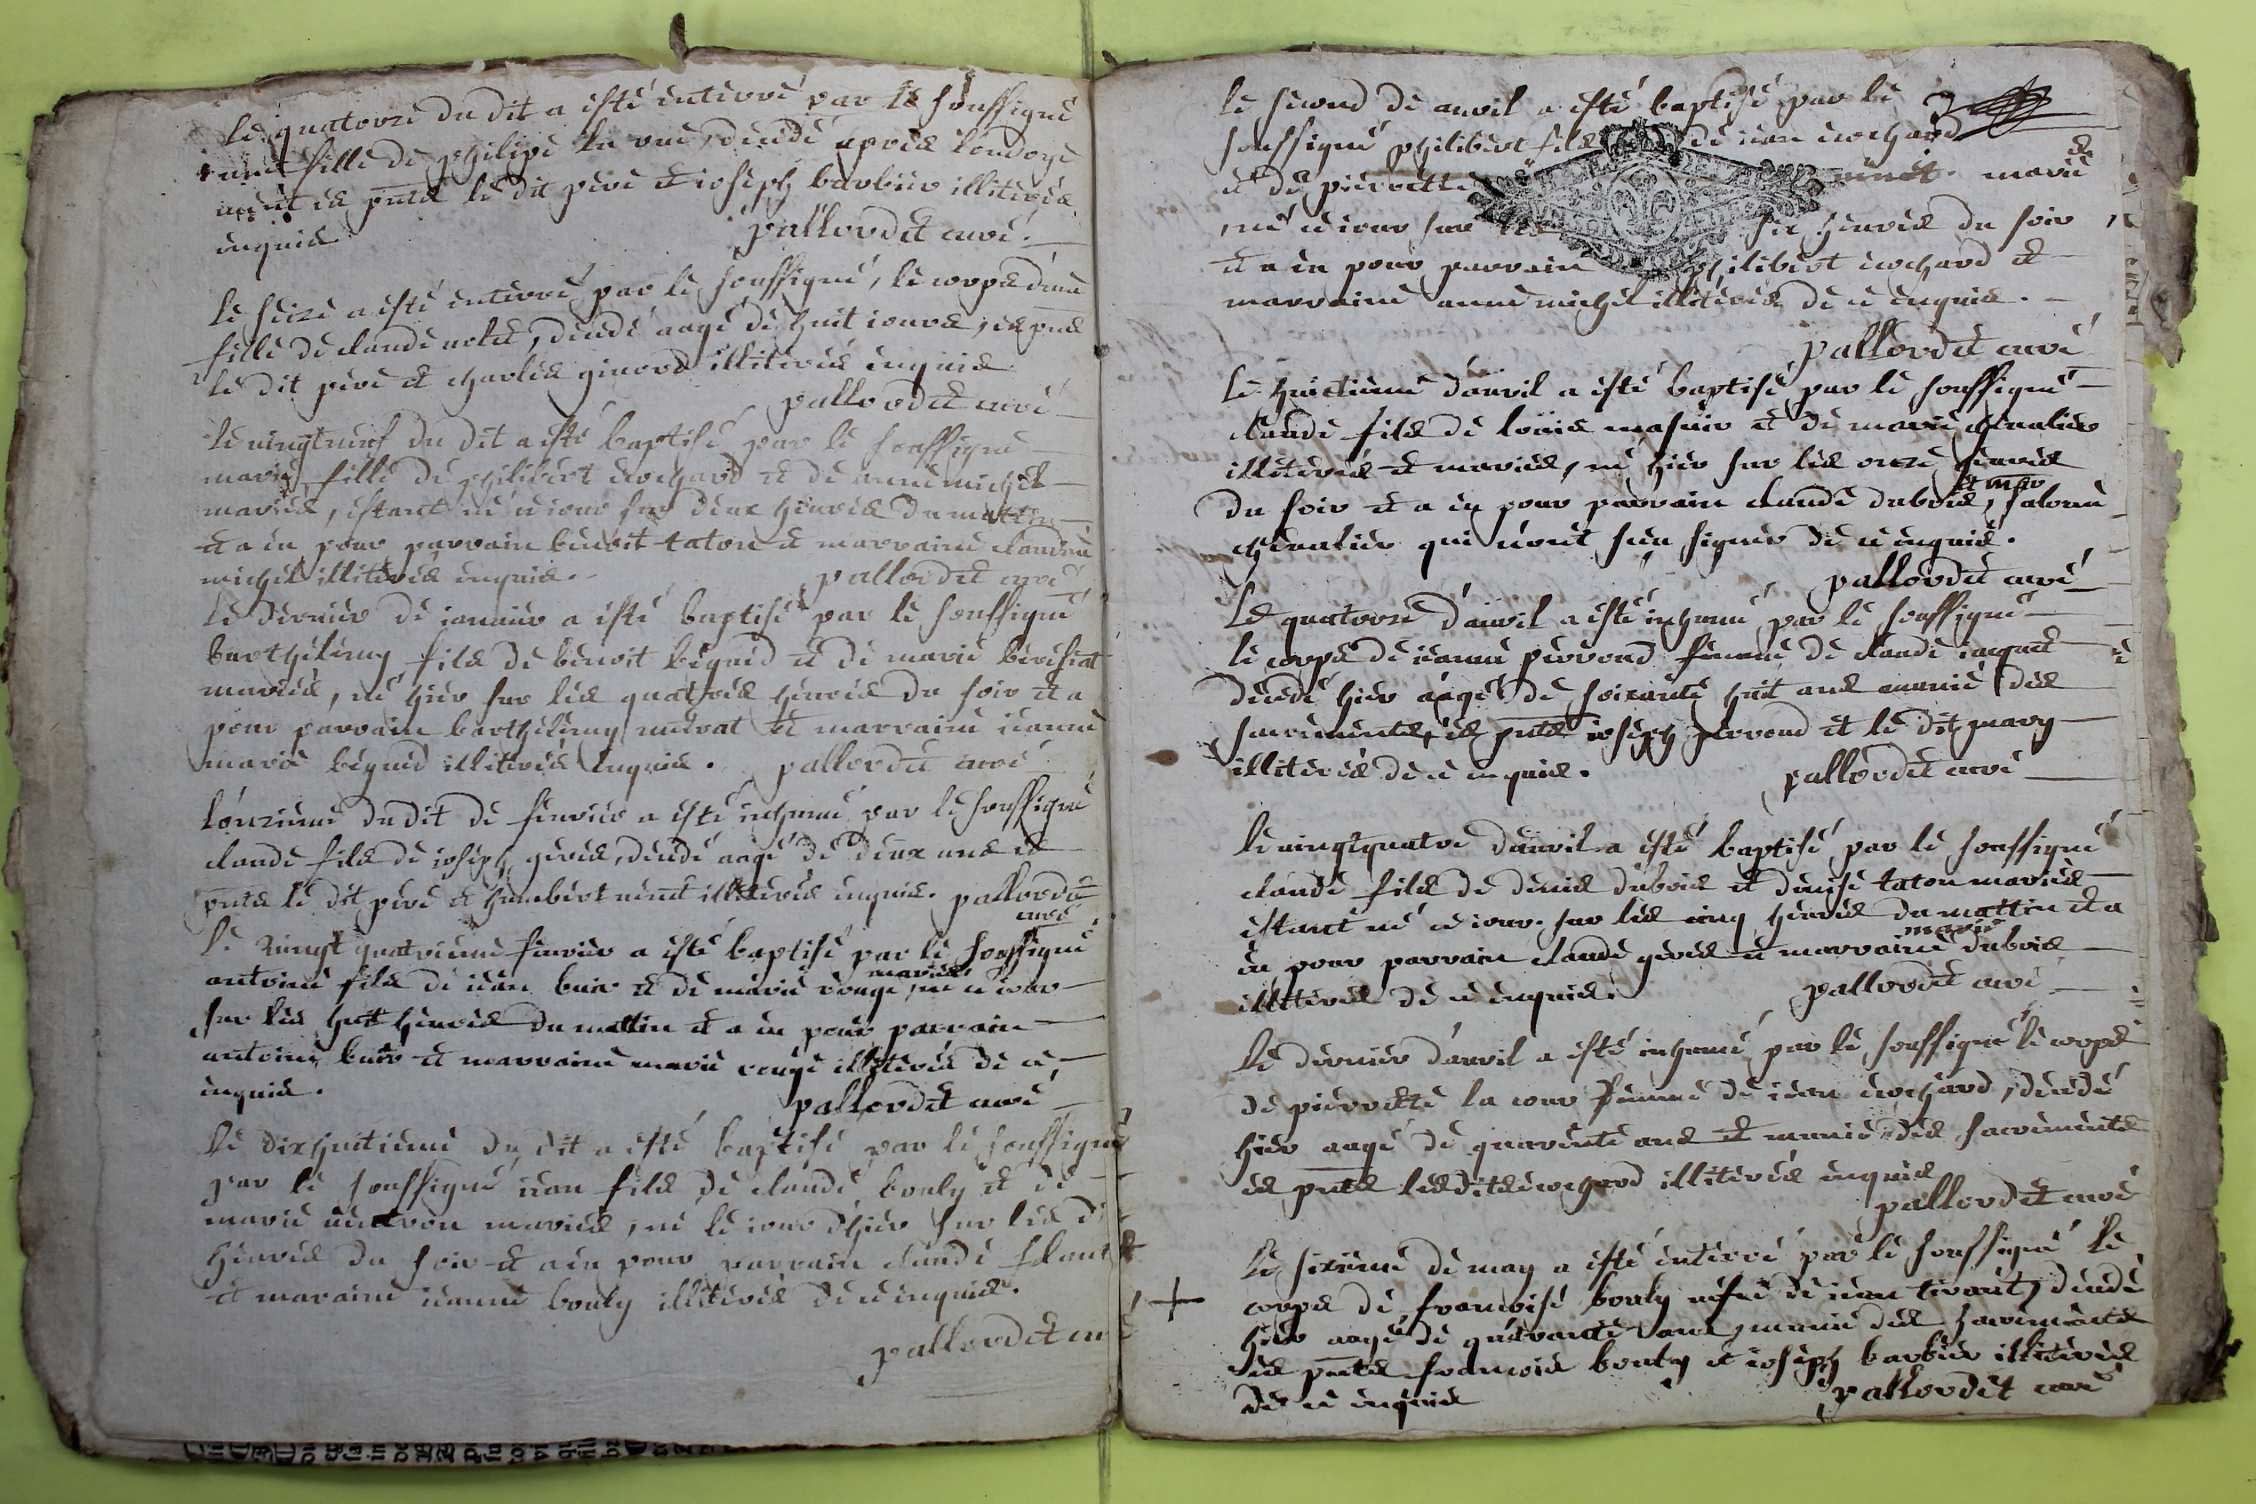 le quatorze du dit a esté enterré par le soussigné
une fille de philipe la rue, decedé apres londoye
ment es pntes le dit pere et ioseph barbier illiterés
enquis pallordet curé
le seize a esté enterré par le soussigné, le corps dune
fille de claude, decedé aagé de huit iours, es pnes
le dit pere et charles illiterés enquis
pallordet curé
le vingtneuf du dit a esté baptisé par le soussigné
marie fille de philibert cochard et de anne michel
mariés, estant né ce iour sur deux heures du mattin
et a eu pour parrain benoit taton et marraine claudine
michel illiterés enquis. pallordet curé
le dernier de ianuier a esté baptisé par le soussigné
barthelemy fils de benoit beguid et de marie
mariés, né hier sur les quattres heures du soir et a
pour parrain barthelemy murat et marraine ieanne
marie beguid illiterés enquis. pallordet curé
l'onzieme du dit de feurier a esté inhumé par le soussigné
claude fils de ioseph geres, decedé aagé de deux ans es
pntes le dit pere et humbert illiterés enquis. pallordet
curé
le vingt quatrieme feurier a esté baptisé par le soussigné
antoine fils de iean buir et de marie rouge mariés, né ce iour
sur les huit heures du mattin et a eu pour parrain
antoine buir et marraine marie rouge illiterés de ce
enquis.
pallordet curé
le dixhuitieme du dit a esté baptisé par le soussigné
par le soussigné iean fils de claude bouly et de
marie mariés, né le iour dhier sur les
heures du soir et a eu pour parrain claude
et maraine ieanne bouly illiterés de ce enquis.
pallordet cu
le second de auril a esté baptisé par le 3
soussigné philibert fils de iean cochard
et de pierrette mariés
né ce iour sur les six heures du soir
et a eu pour parrain philibert cochard et
marraine anne michel illiterés de ce enquis.
pallordet curé
le huictieme d'auril a esté baptisé par le soussigné
claude fils de loüis masuir et de marie cheualier
illiterés et mariés, né hier sur les onze heures
du soir et a eu pour parrain claude dubois, et mar
cheualier qui n'ont sceu signer de ce enquis.
pallordet curé
le quatorze d'auril a esté inhumé par le soussigné
le corps de ieanne perroud femme de claude iaquet
decedé hier aagé de soixante huit ans munie des
sacrements, es pntes ioseph perroud et le dit mary
illiterés de ce enquis. pallordet curé
le vingtquatre d'auril a esté baptisé par le soussigné
claude fils de denis dubois et denise taton mariés
estant né ce iour sur les cinq heures du mattin et a
eu pour parrain claude geres et marraine marie dubois
illiterés de ce enquis. pallordet curé
le dernier d'auril a esté inhumé par le soussigné le corps
de pierrette la cour femme de iean cochard, decedé
hier aagé de quarente ans et munie des sacrements
es pntes lesdits cochard illiterés enquis
pallordet curé
le sixieme de may a esté enterré par le soussigné le
corps de francoise bouly uefue de iean tirant, decedé
hier aagé de quarante ans, munie des sacrements
es pntes francois bouly et ioseph barbier illiterés
de ce enquis pallordet curé